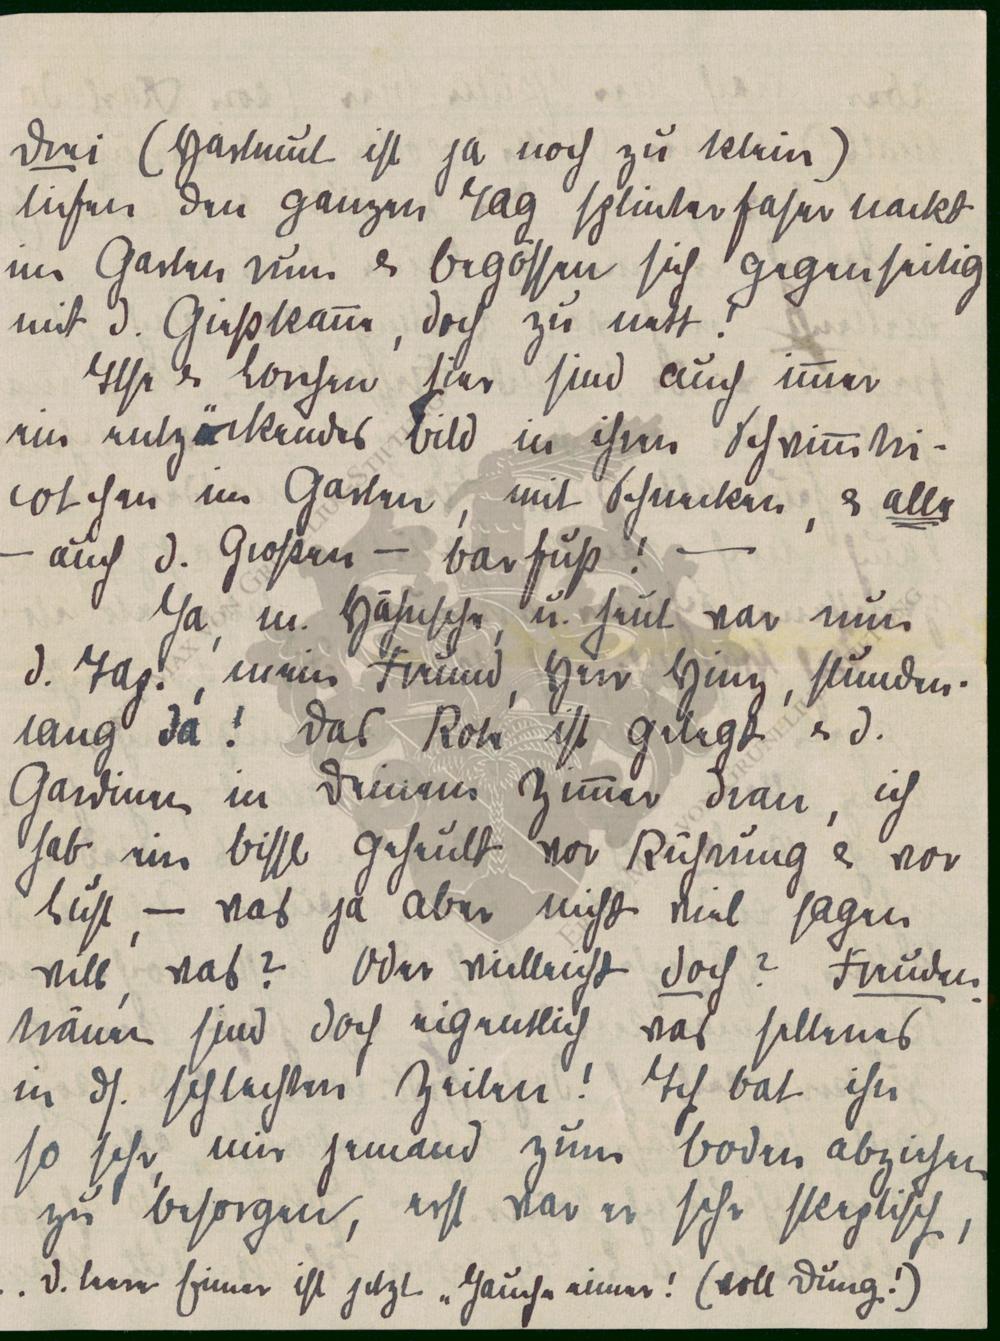 drei (Hartmut ist ja noch zu klein)
liefen den ganzen Tag splinterfaser nackt
im Garten rum & begossen sich gegenseitig
mit d. Gießkan̄e, doch zu nett!
Ilse & Lorchen hier sind auch im̄er
ein entzückendes Bild in ihren Schwim̄tri-
cotchen im Garten, mit Schnecken, & alle
– auch d. Großen – barfuß! –
Ja, m. Hähnsche, u. heut war nun
d. Tap., mein Freund, Herr Hinz, stunden-
lang da! Das Rohr ist gelegt & d.
Gardinen in Deinem Zim̄er dran, ich
hab ein bissl geheult vor Rührung & vor
Lust, – was ja aber nicht viel sagen
will, was? Oder vielleicht doch? Freuden-
tränen sind doch eigentlich was seltenes
in ds. schlechten Zeiten! Ich bat ihn
so sehr, mir jemand zum Boden abziehen
zu besorgen, erst war er sehr skeptisch,
.. d. leere Eimer ist jetzt „Jauche eimer! (voll Dung!)
MAX VON GRUNELIUS-STIFTUNG
VON GRUNELIUS-STIFTUNG